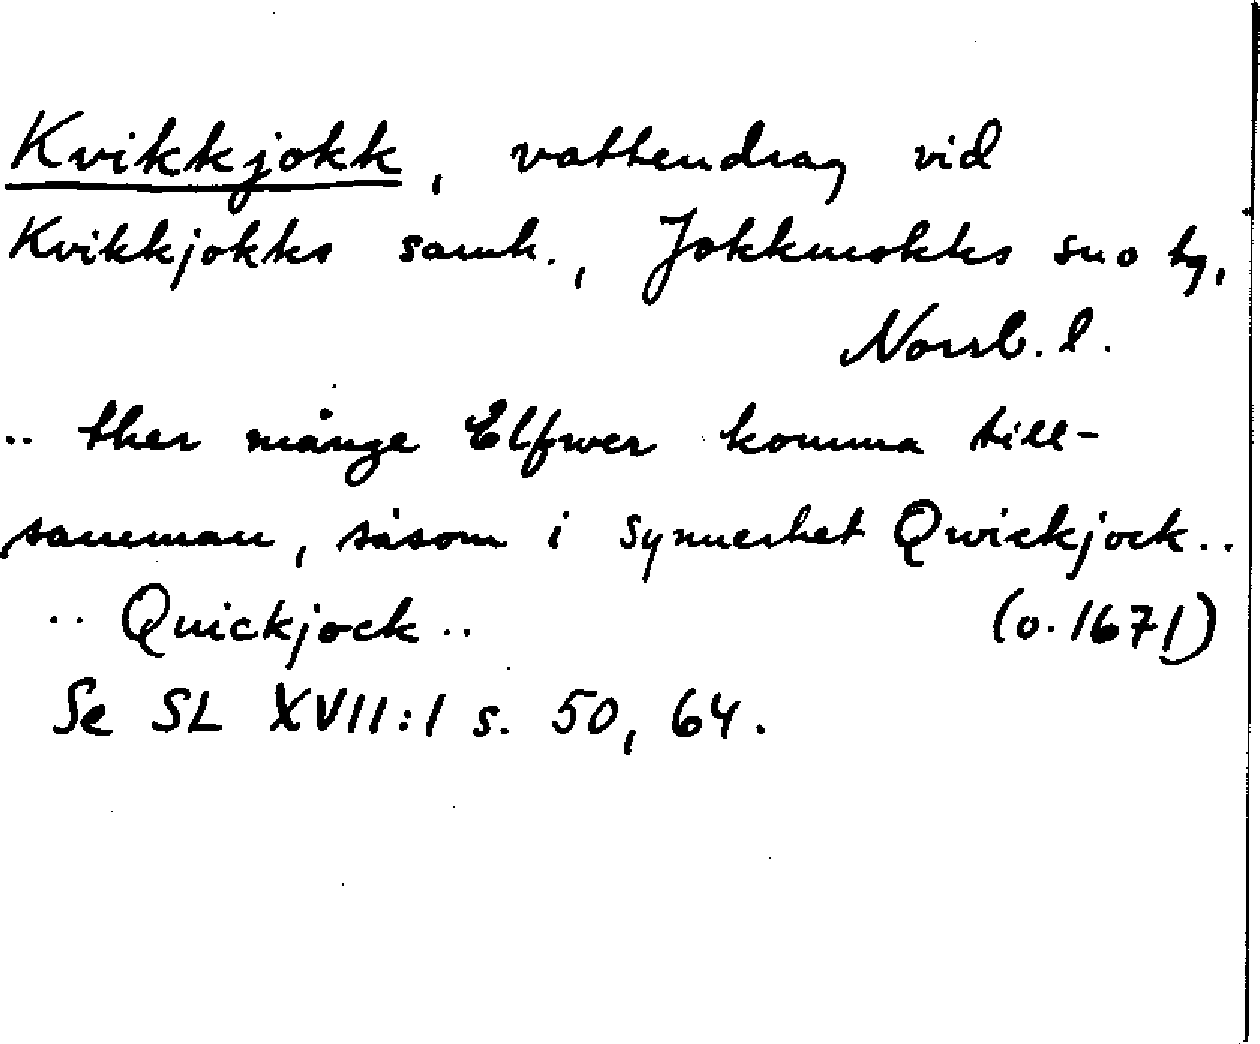 Kvikkjokk, vattendrag vid
Kvikkjokks samh., Jokkmokks sn o tg,
Norrb. l.
.. ther månge Elfwer komma till-
samman, såsom i synnerhet Qwickjock..
.. Quickjock.. (o. 1671)
Se SL XVII:1 s. 50, 64.